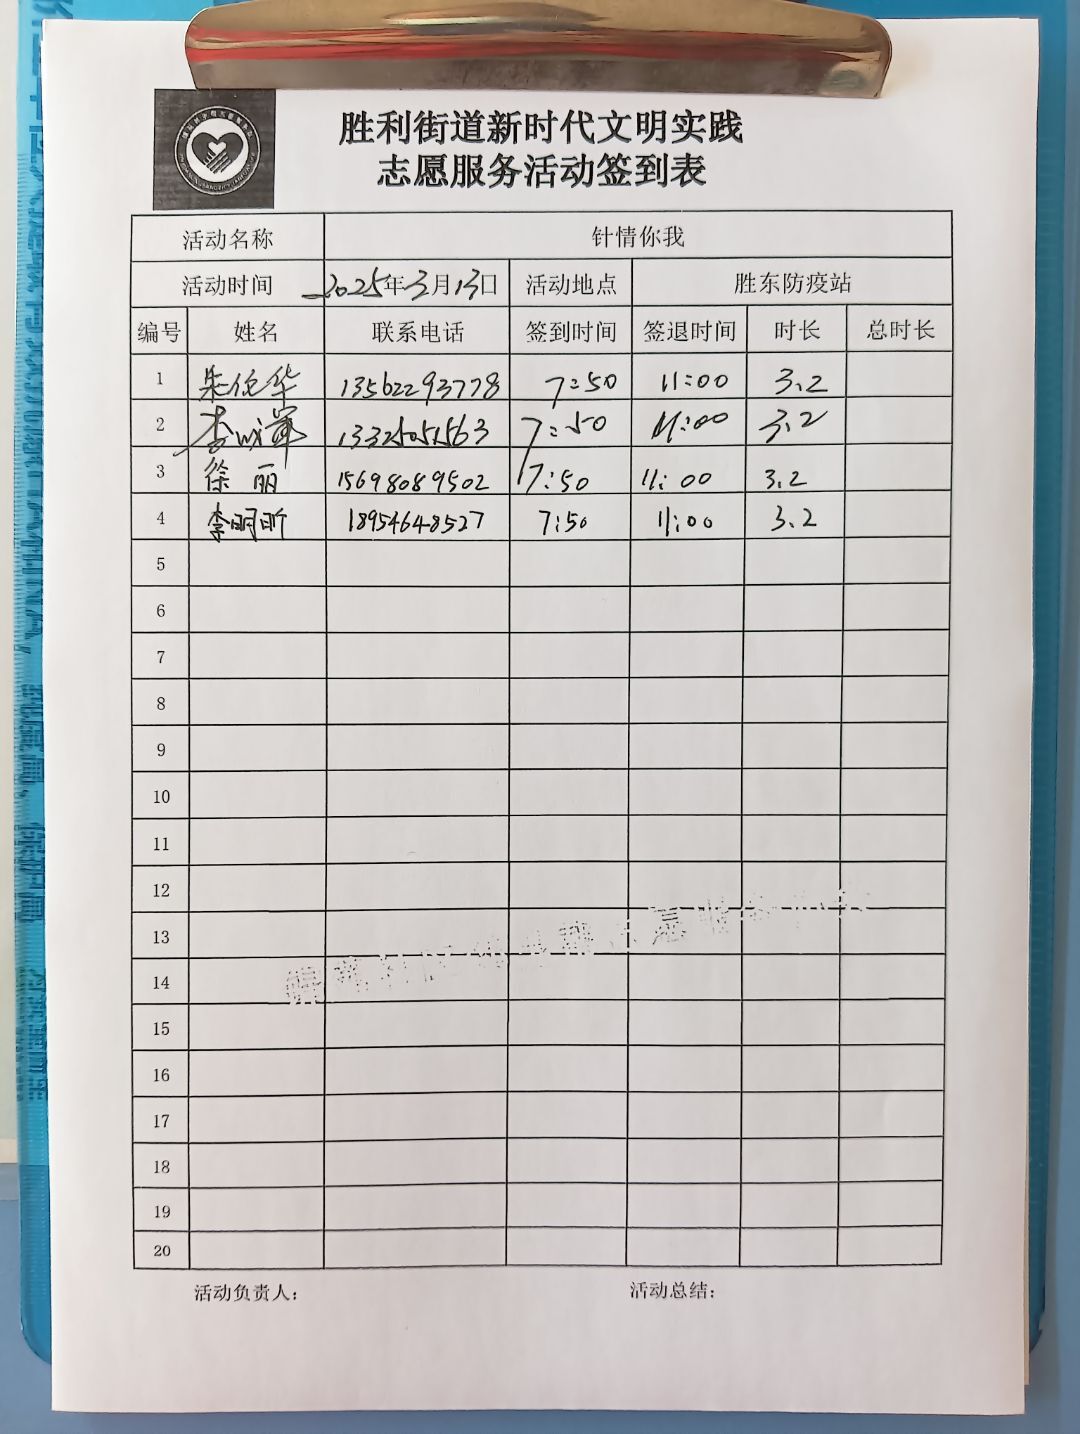 胜利街道新时代文明实践
志愿服务活动签到表
活动名称 针情你我
活动时间 2025年3月13日 活动地点 胜东防疫站
编号 姓名 联系电话 签到时间 签退时间 时长 总时长
1 朱伦华 13562293778 7:50 11:00 3.2
2 李成军 13325051563 7:50 11:00 3.2
3 徐丽 15698089502 7:50 11:00 3.2
4 李明昕 18954648527 7:50 11:00 3.2
5
6
7
8
9
10
11
12
13
14
15
16
17
18
19
20
活动负责人: 活动总结: